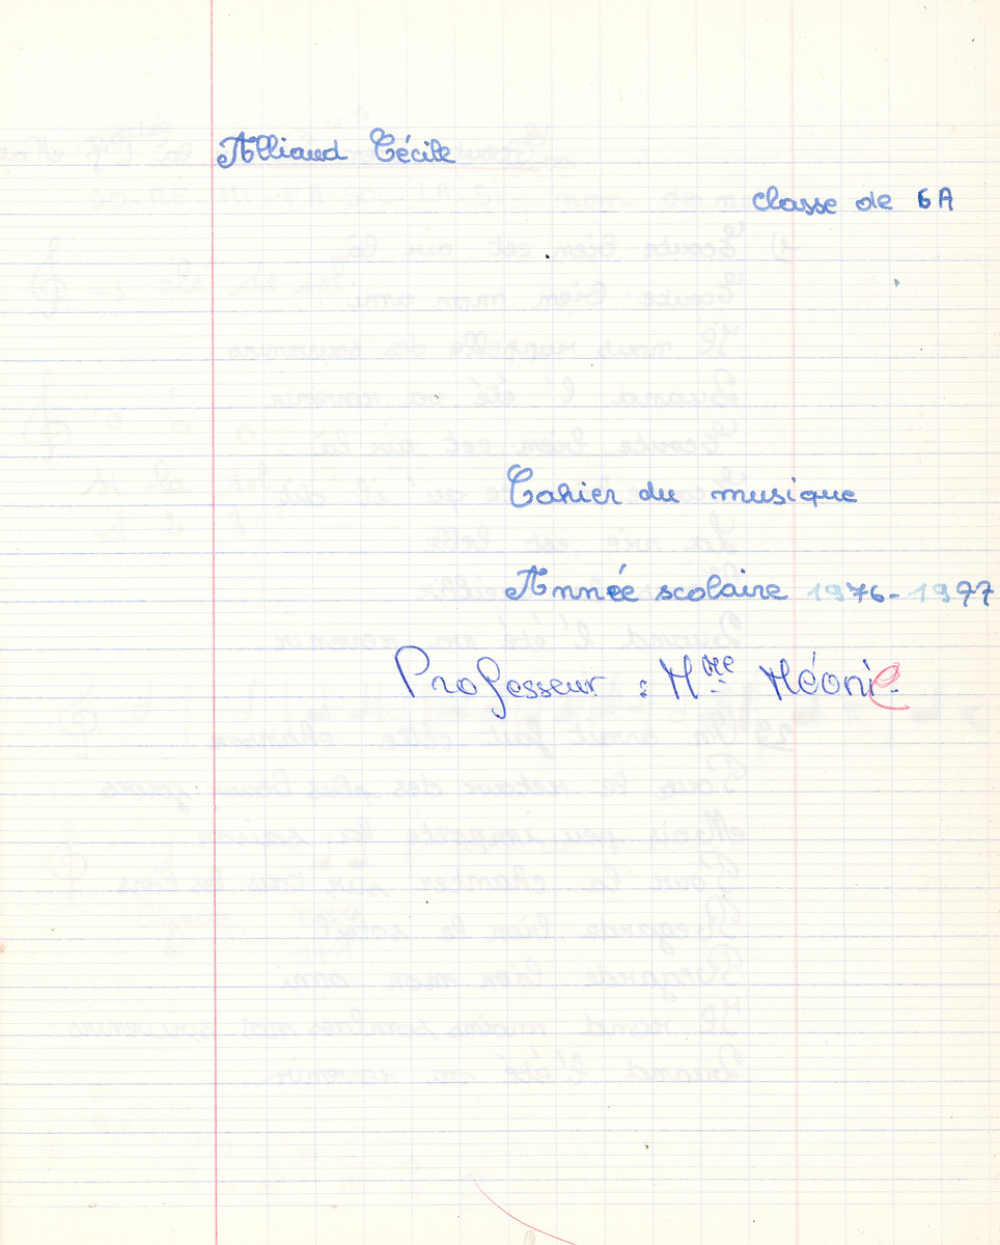 Alliaud Cécile
classe de 6A
Cahier du musique
Année scolaire 1976-1977
Professeur : Mme Méonie